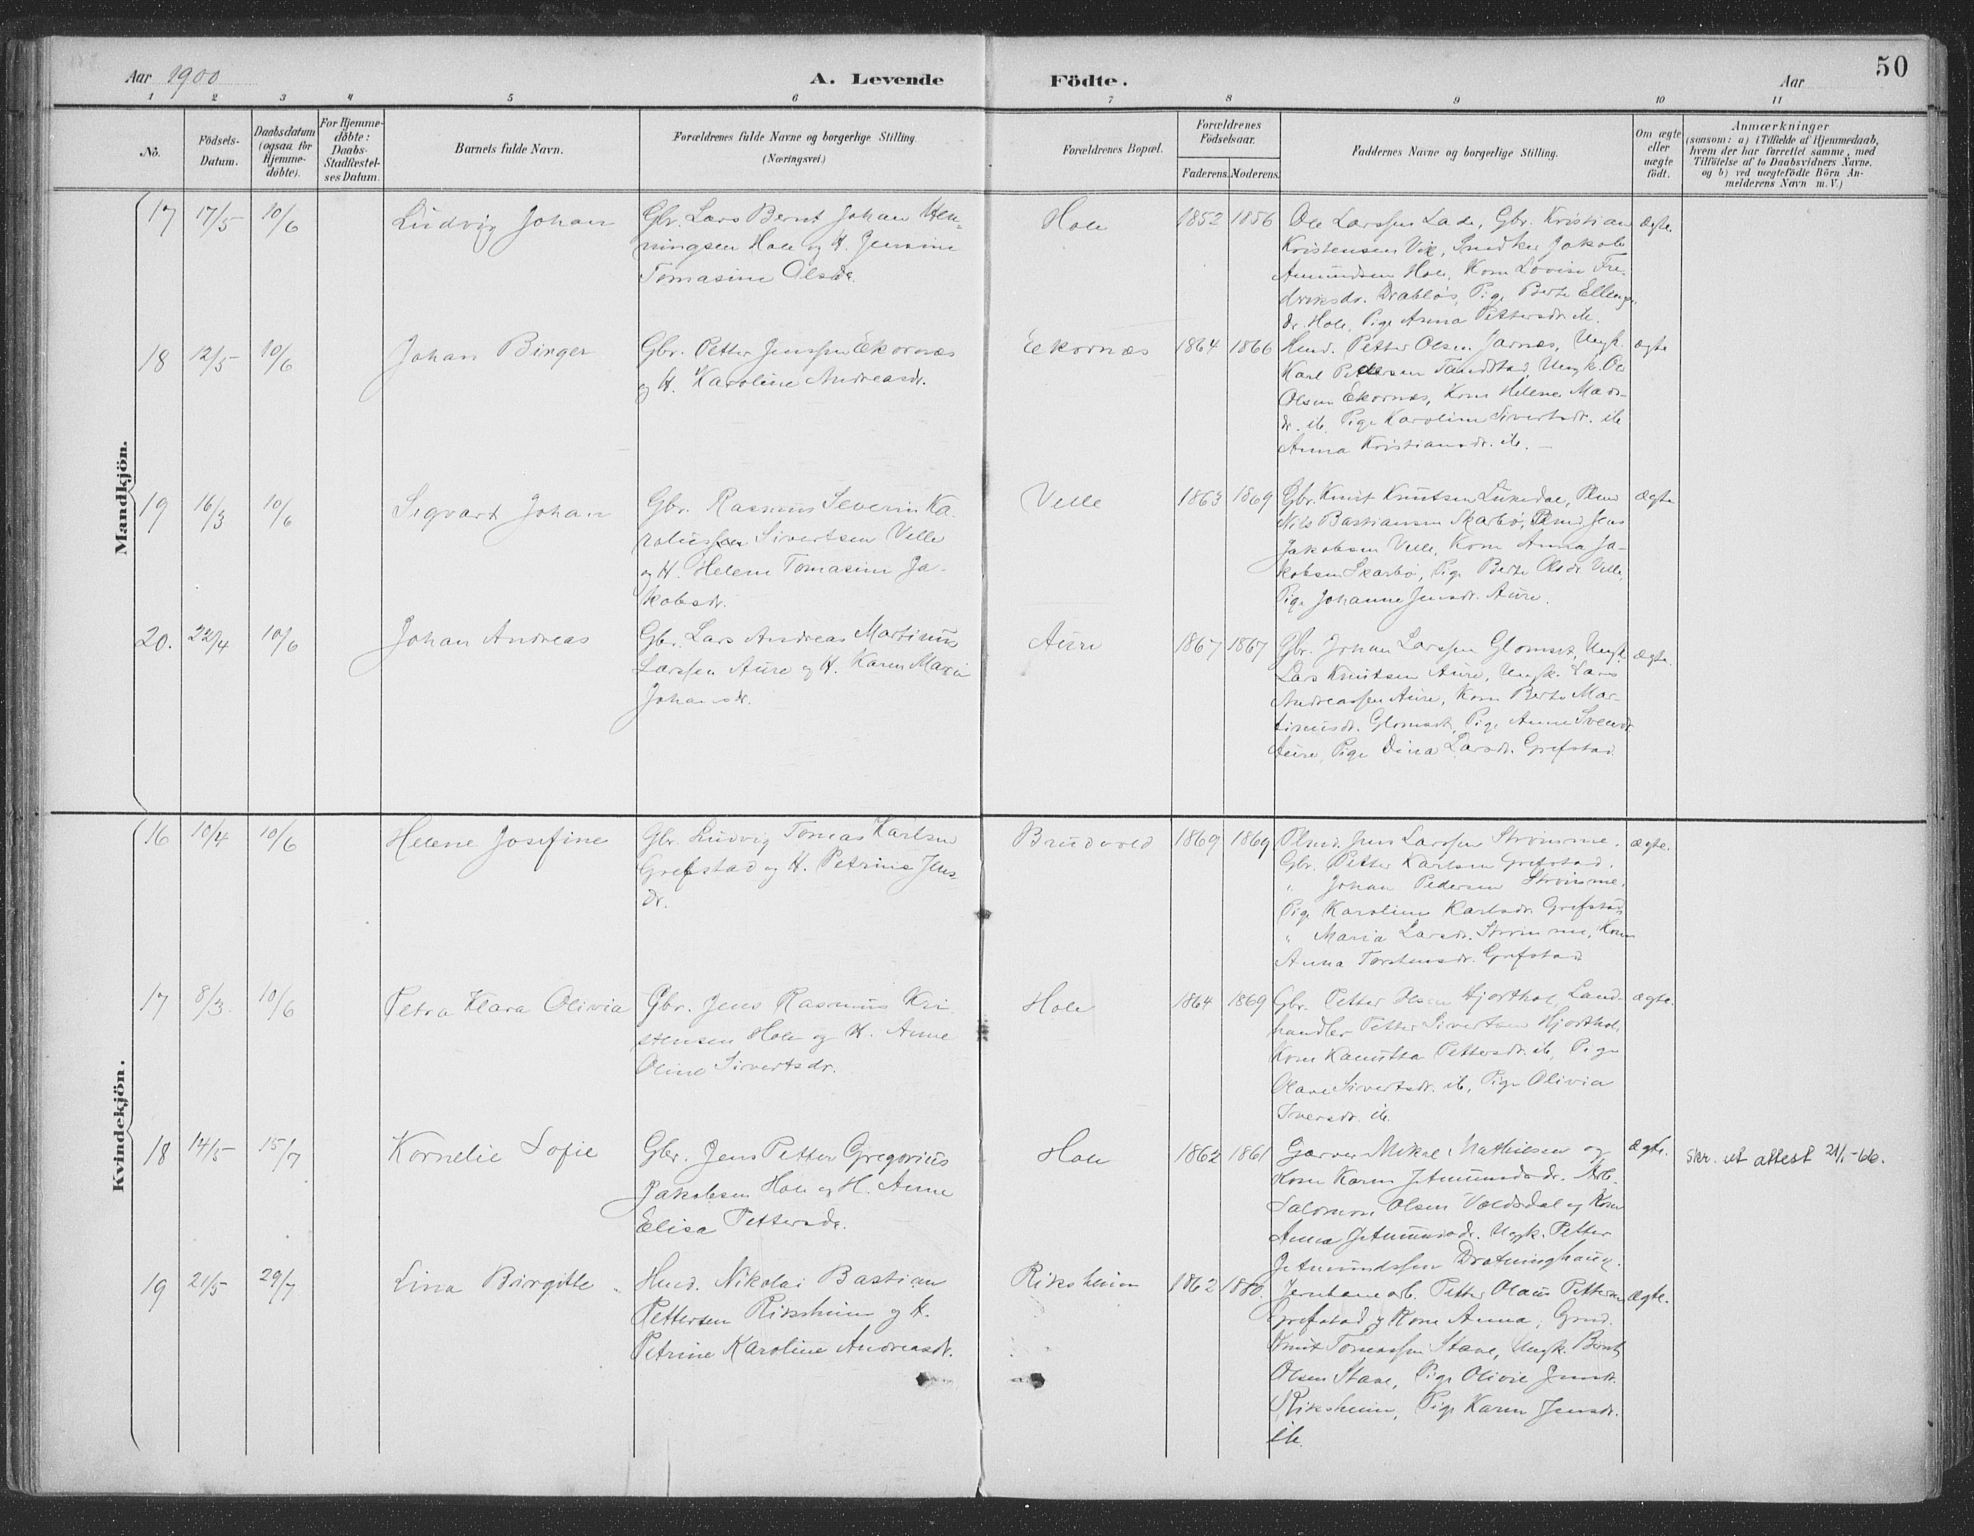 50
Aar 1900 A. Levende Födte. Aar
1 2 3 4 5 6 7 8 9 10 11
No.
Födsels-Datum.
Daabsdatum (ogsaa for Hjemme-döbte).
For Hjemme-döbte: Daabs-Stadfæstel-ses Datum.
Barnets fulde Navn.
Forældrenes fulde Navne og borgerlige Stilling.
(Næringsvei.)
Forældrenes Bopæl.
Forældrenes Födselsaar.
Faderens. Moderens.
Faddernes Navne og borgerlige Stilling.
Om ægte eller uægte födt.
Anmærkninger
(saasom: a) i Tilfælde af Hjemmedaab,
hvem der har forrettet samme, med
Tilföielse af to Daabsvidners Navne.
og b) ved uægtefödte Börn An-
melderens Navn m. V.)
Mandkjön.
17 17/5 10/6 Ludvig Johan
Gbr. Lars Bernt Johan Hen-
ningsen Hole og H. Jensine
Tomasine Olsdr.
Hole 1852 1856
Ole Larssen Lade, Gbr. Kristian
Kristensen Vik, Snedker Jakob
Amundsen Hole, Kone Lovise Fre-
driksdr. Drabløs, Pige Berte Ellings-
dr. Hole, Pige Anna Pettersdr. ib.
ægte
18 12/5 10/6 Johan Birger
Gbr. Petter Jenssen Ekornæs
og H. Karoline Andreasdr.
Ekornæs 1864 1866
Hmd. Petter Olsen Jarnæs, Ungk.
Karl Pettersen Tandstad, Ungk. Ole
Olsen Ekornæs, Kone Helene Mads-
dr. ib. Pige Karoline Sivertsdr. ib
Anna Kristiansdr. ib. —
ægte
19 16/3 10/6 Sigvart Johan
Gbr. Rasmus Severin Ka-
rolussen Sivertsen Velle
og H. Helene Tomasine Ja-
kobsdr.
Velle 1863 1869
Gbr. Knut Knutsen Lukedal, Plmd
Nils Bastiansen Skarbø, Plmd Jens
Jakobsen Velle, Kone Anna Ja-
kobsen Skarbø, Pige Berte Olsdr. Velle,
Pige Johanne Jensdr. Aure.
ægte
20. 22/4 10/6 Johan Andreas
Gbr. Lars Andreas Martinus
Larssen Aure og H. Karen Maria
Johansdr.
Aure 1867 1867
Gbr. Johan Larssen Glomset, Ungk.
Lars Knutsen Aure, Ungk. Lars
Andreassen Aure, Kone Berte Mar-
tinusdr. Glomset, Pige Anne Svendr.
Aure, Pige Dina Larsdr. Grefstad.
ægte
Kvindekjön.
16 10/4 10/6 Helene Josefine
Gbr. Ludvig Tomas Karlsen
Grefstad og H. Petrine Jens-
dr.
Brudevold 1869 1869
Plmd. Jens Larssen Strømme.
Gbr. Petter Karlsen Grefstad.
" Johan Pedersen Strømme.
Pige Karoline Karlsdr. Grefstad,
" Maria Larsdr. Strømme, Kone
Anna Torstensdr. Grefstad
ægte.
17 8/3 10/6 Petra Klara Olivia
Gbr. Jens Rasmus Kri-
stensen Hole og H. Anne
Oline Sivertsdr.
Hole 1864 1869
Gbr. Petter Olsen Hjorthol, Land-
handler Petter Sivertsen Hjorthol,
Kone Kanutta Pettersdr. ib, Pige
Olave Sivertsdr. ib, Pige Olivia
Iversdr. ib.
ægte.
18 14/5 15/7 Kornelie Sofie
Gbr. Jens Petter Gregorius
Jakobsen Hole og H. Anne
Elisa Pettersdr.
Hole 1862 1861
Garver Mikal Mathiesen og
Kone Karen J. Amundsdr. Arb.
Salomon Olsen Valdsdal og Kone
Anna J. Amundsdr. Ungk. Petter
J. Amundssen Dratninghaug.
ægte.
Skr. ut attest 21/1-66.
19 21/5 29/7 Lina Birgitte
Hmd. Nikolai Bastian
Pettersen Riksheim og H.
Petrine Karoline Andreasdr.
Riksheim 1862 1860.
Jernbanearb. Petter Olaus Pettersen
Grefstad og Kone Anna, Gmd.
Knut Tomassen Stave, Ungk. Bernt
Olsen Stave, Pige Olivie Jensdr.
Riksheim, Pige Karen Jensdr.
ib.
ægte.